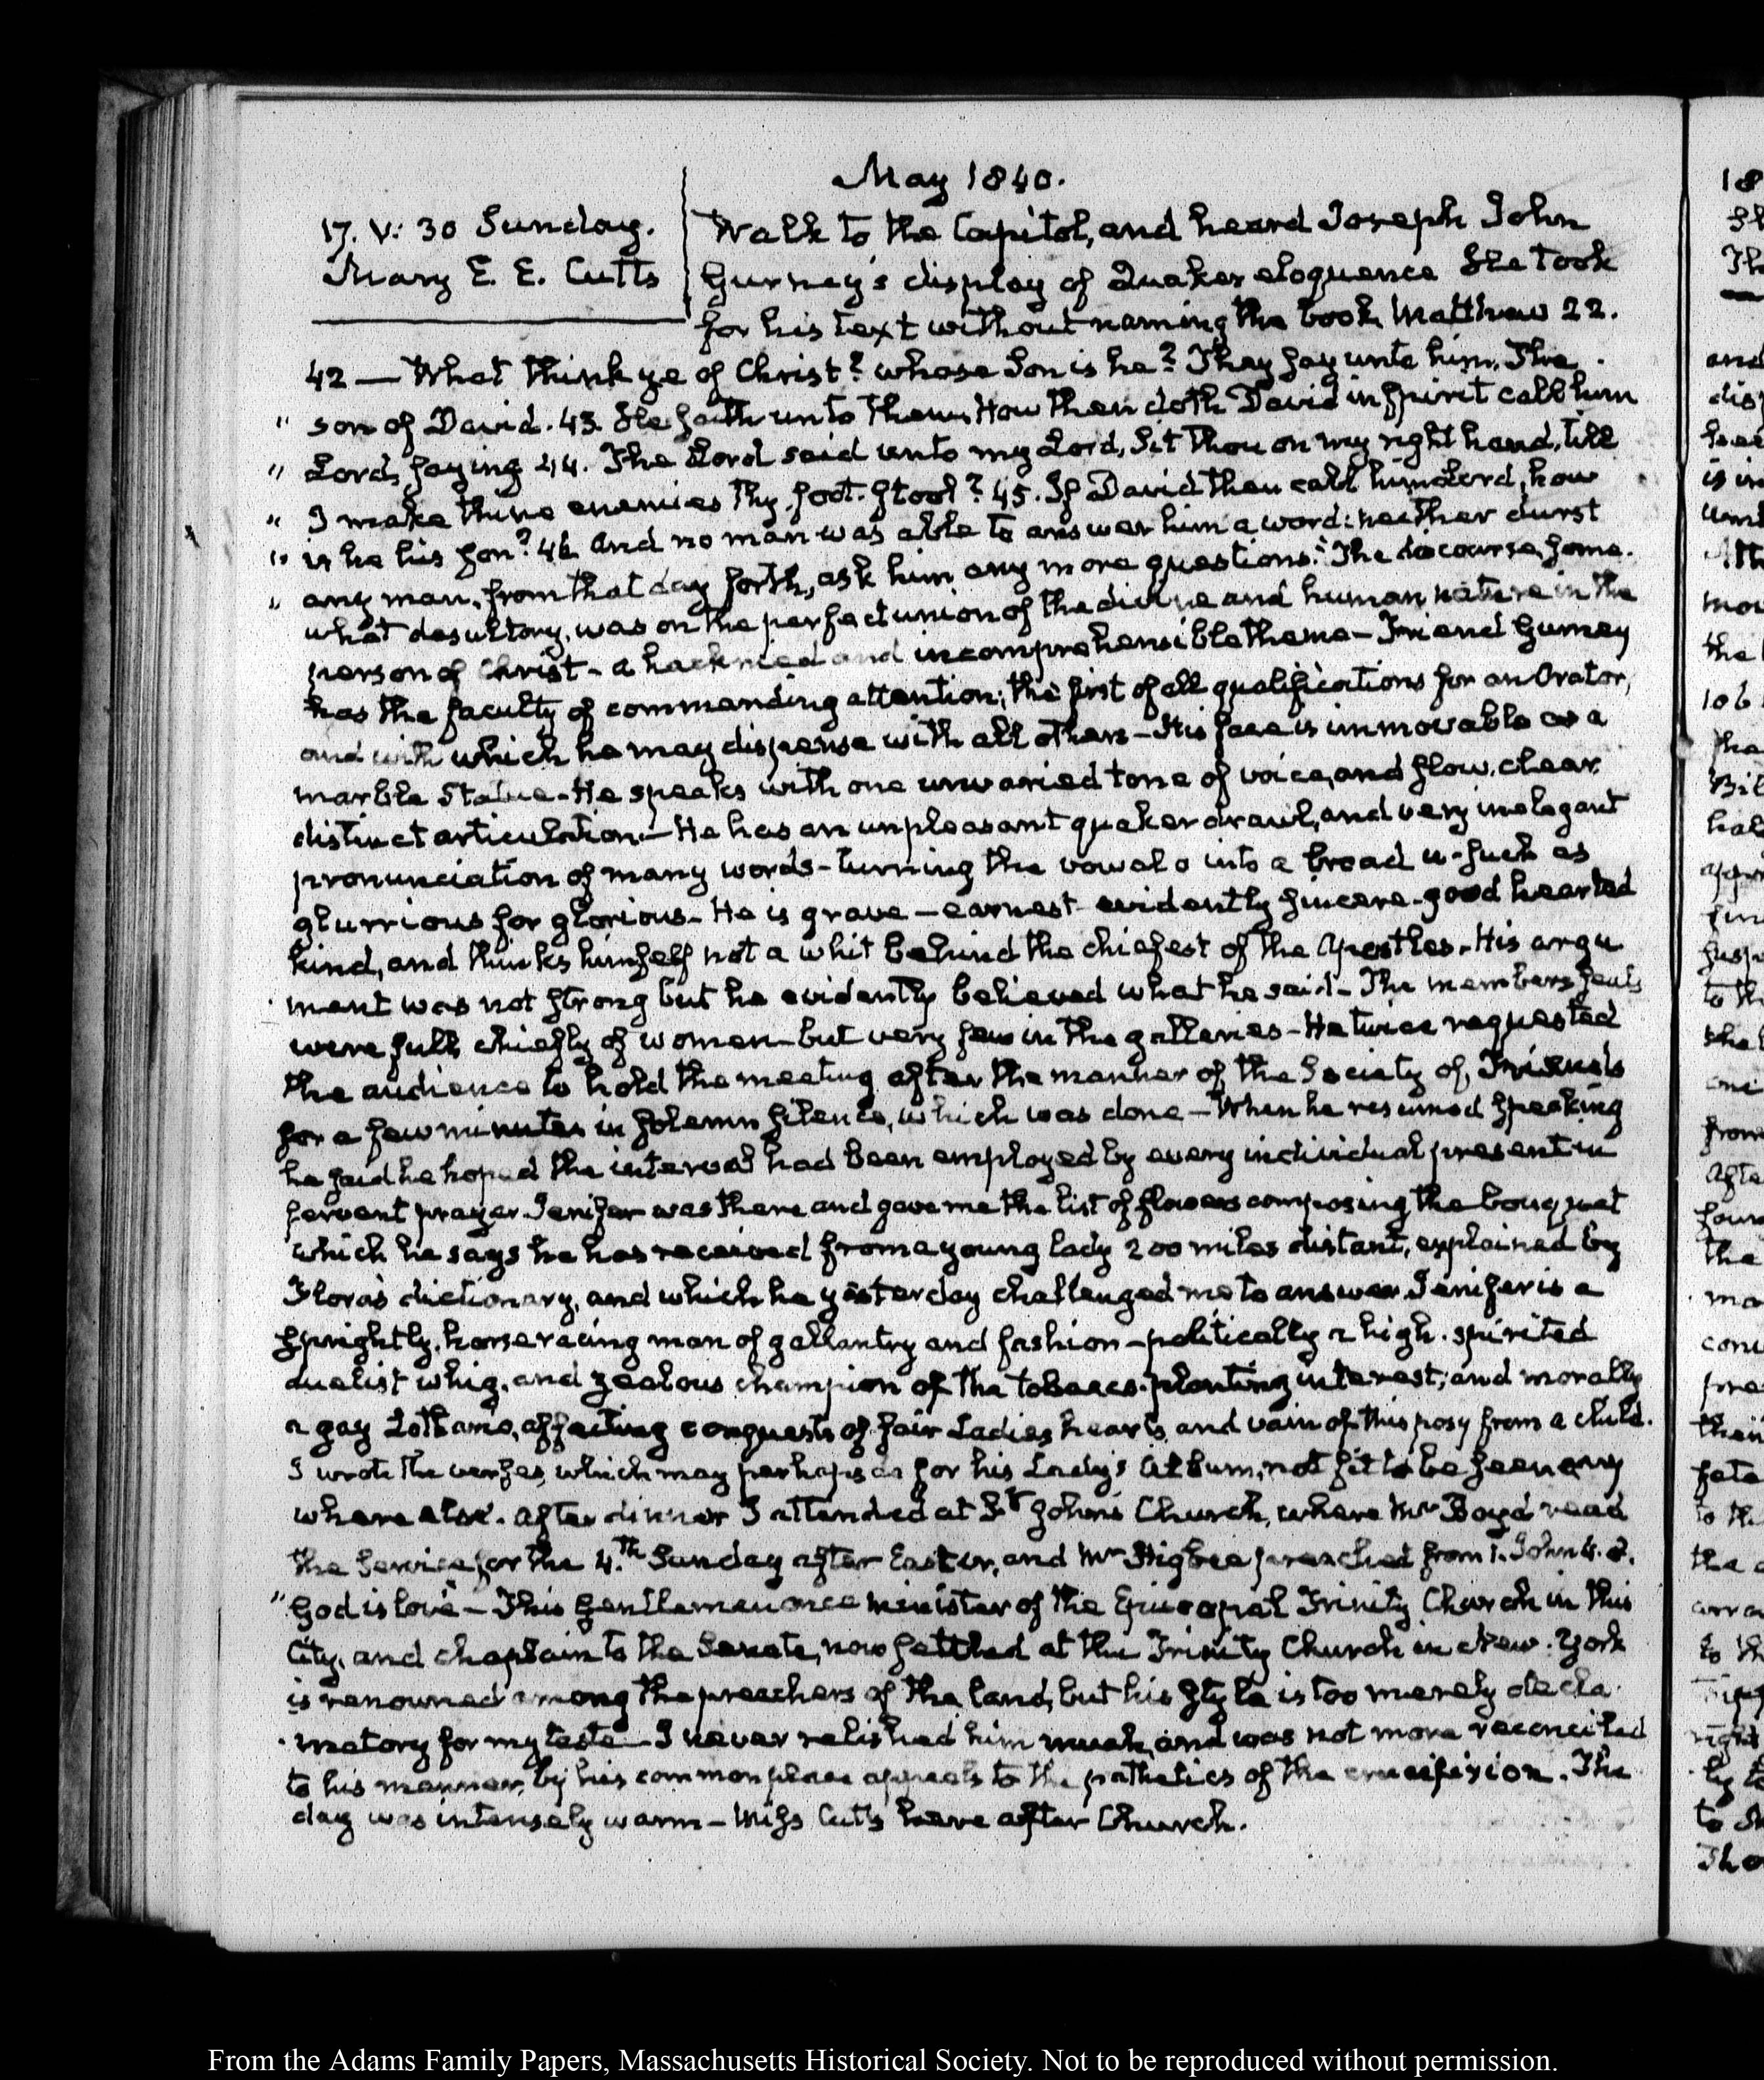 May 1840.
17. V: 30 Sunday.
Mary E. E. Cutts
Walk to the Capitol, and heard Joseph John
Gurney's display of Quaker eloquence He took
for his text without naming the book Matthew 22.
42 — What think ye of Christ? whose Son is he? They say unto him, The
" son of David. 43. He saith unto them, How then doth David in spirit call him
" Lord, saying 44. The Lord said unto my Lord, Sit thou on my right hand, till
" I make thine enemies thy foot-stool? 45. If David then call him Lord, how
" is he his son? 46. And no man was able to answer him a word: neither durst
" any man, from that day forth, ask him any more questions." The discourse, some-
what desultory, was on the perfect union of the divine and human nature in the
person of Christ - a hacknied and incomprehensible theme - Friend Gurney
has the faculty of commanding attention; the first of all qualifications for an Orator,
and with which he may dispense with all others - His face is immovable as a
marble statue - He speaks with one unvaried tone of voice, and slow, clear
distinct articulation - He has an unpleasant quaker drawl, and very inelegant
pronunciation of many words - turning the vowel o into a broad u - such as
glurrious for glorious - He is grave - earnest - evidently sincere - good hearted
kind, and thinks himself not a whit behind the chiefest of the Apostles - His argu
ment was not strong but he evidently believed what he said - The members seats
were full, chiefly of women - but very few in the galleries - He twice requested
the audience to hold the meeting after the manner of the Society of, Friends
for a few minutes in solemn silence, which was done - When he resumed speaking
he said he hoped the interval had been employed by every individual present in
fervent prayer. Jenifer was there and gave me the list of flowers composing the bouquet
which he says he has received from a young lady 200 miles distant, explained by
Flora's dictionary, and which he yesterday challenged me to answer. Jenifer is a
sprightly, horse racing man of gallantry and fashion - politically a high-spirited
duelist whig, and zealous champion of the tobacco-planting interest; and morally
a gay Lothario, affecting conquests of fair Ladies hearts, and vain of this posy from a child.
I wrote the verses, which may perhaps do for his Lady's Album, not fit to be seen any
where else. After dinner I attended at St John's Church, where Mr Boyd read
the Service for the 4.th Sunday after Easter, and Mr Higbee preached from 1. John 4. 8.
" God is love" - This Gentleman once minister of the Episcopal Trinity Church in this
City, and chaplain to the Senate, now settled at the Trinity Church in New-York
is renowned among the preachers of the land, but his style is too merely decla-
matory for my taste - I never relished him much, and was not more reconciled
to his manner, by his common place appeals to the pathetics of the crucifixion. The
day was intensely warm - Miss Cutts here after Church.
From the Adams Family Papers, Massachusetts Historical Society. Not to be reproduced without permission.